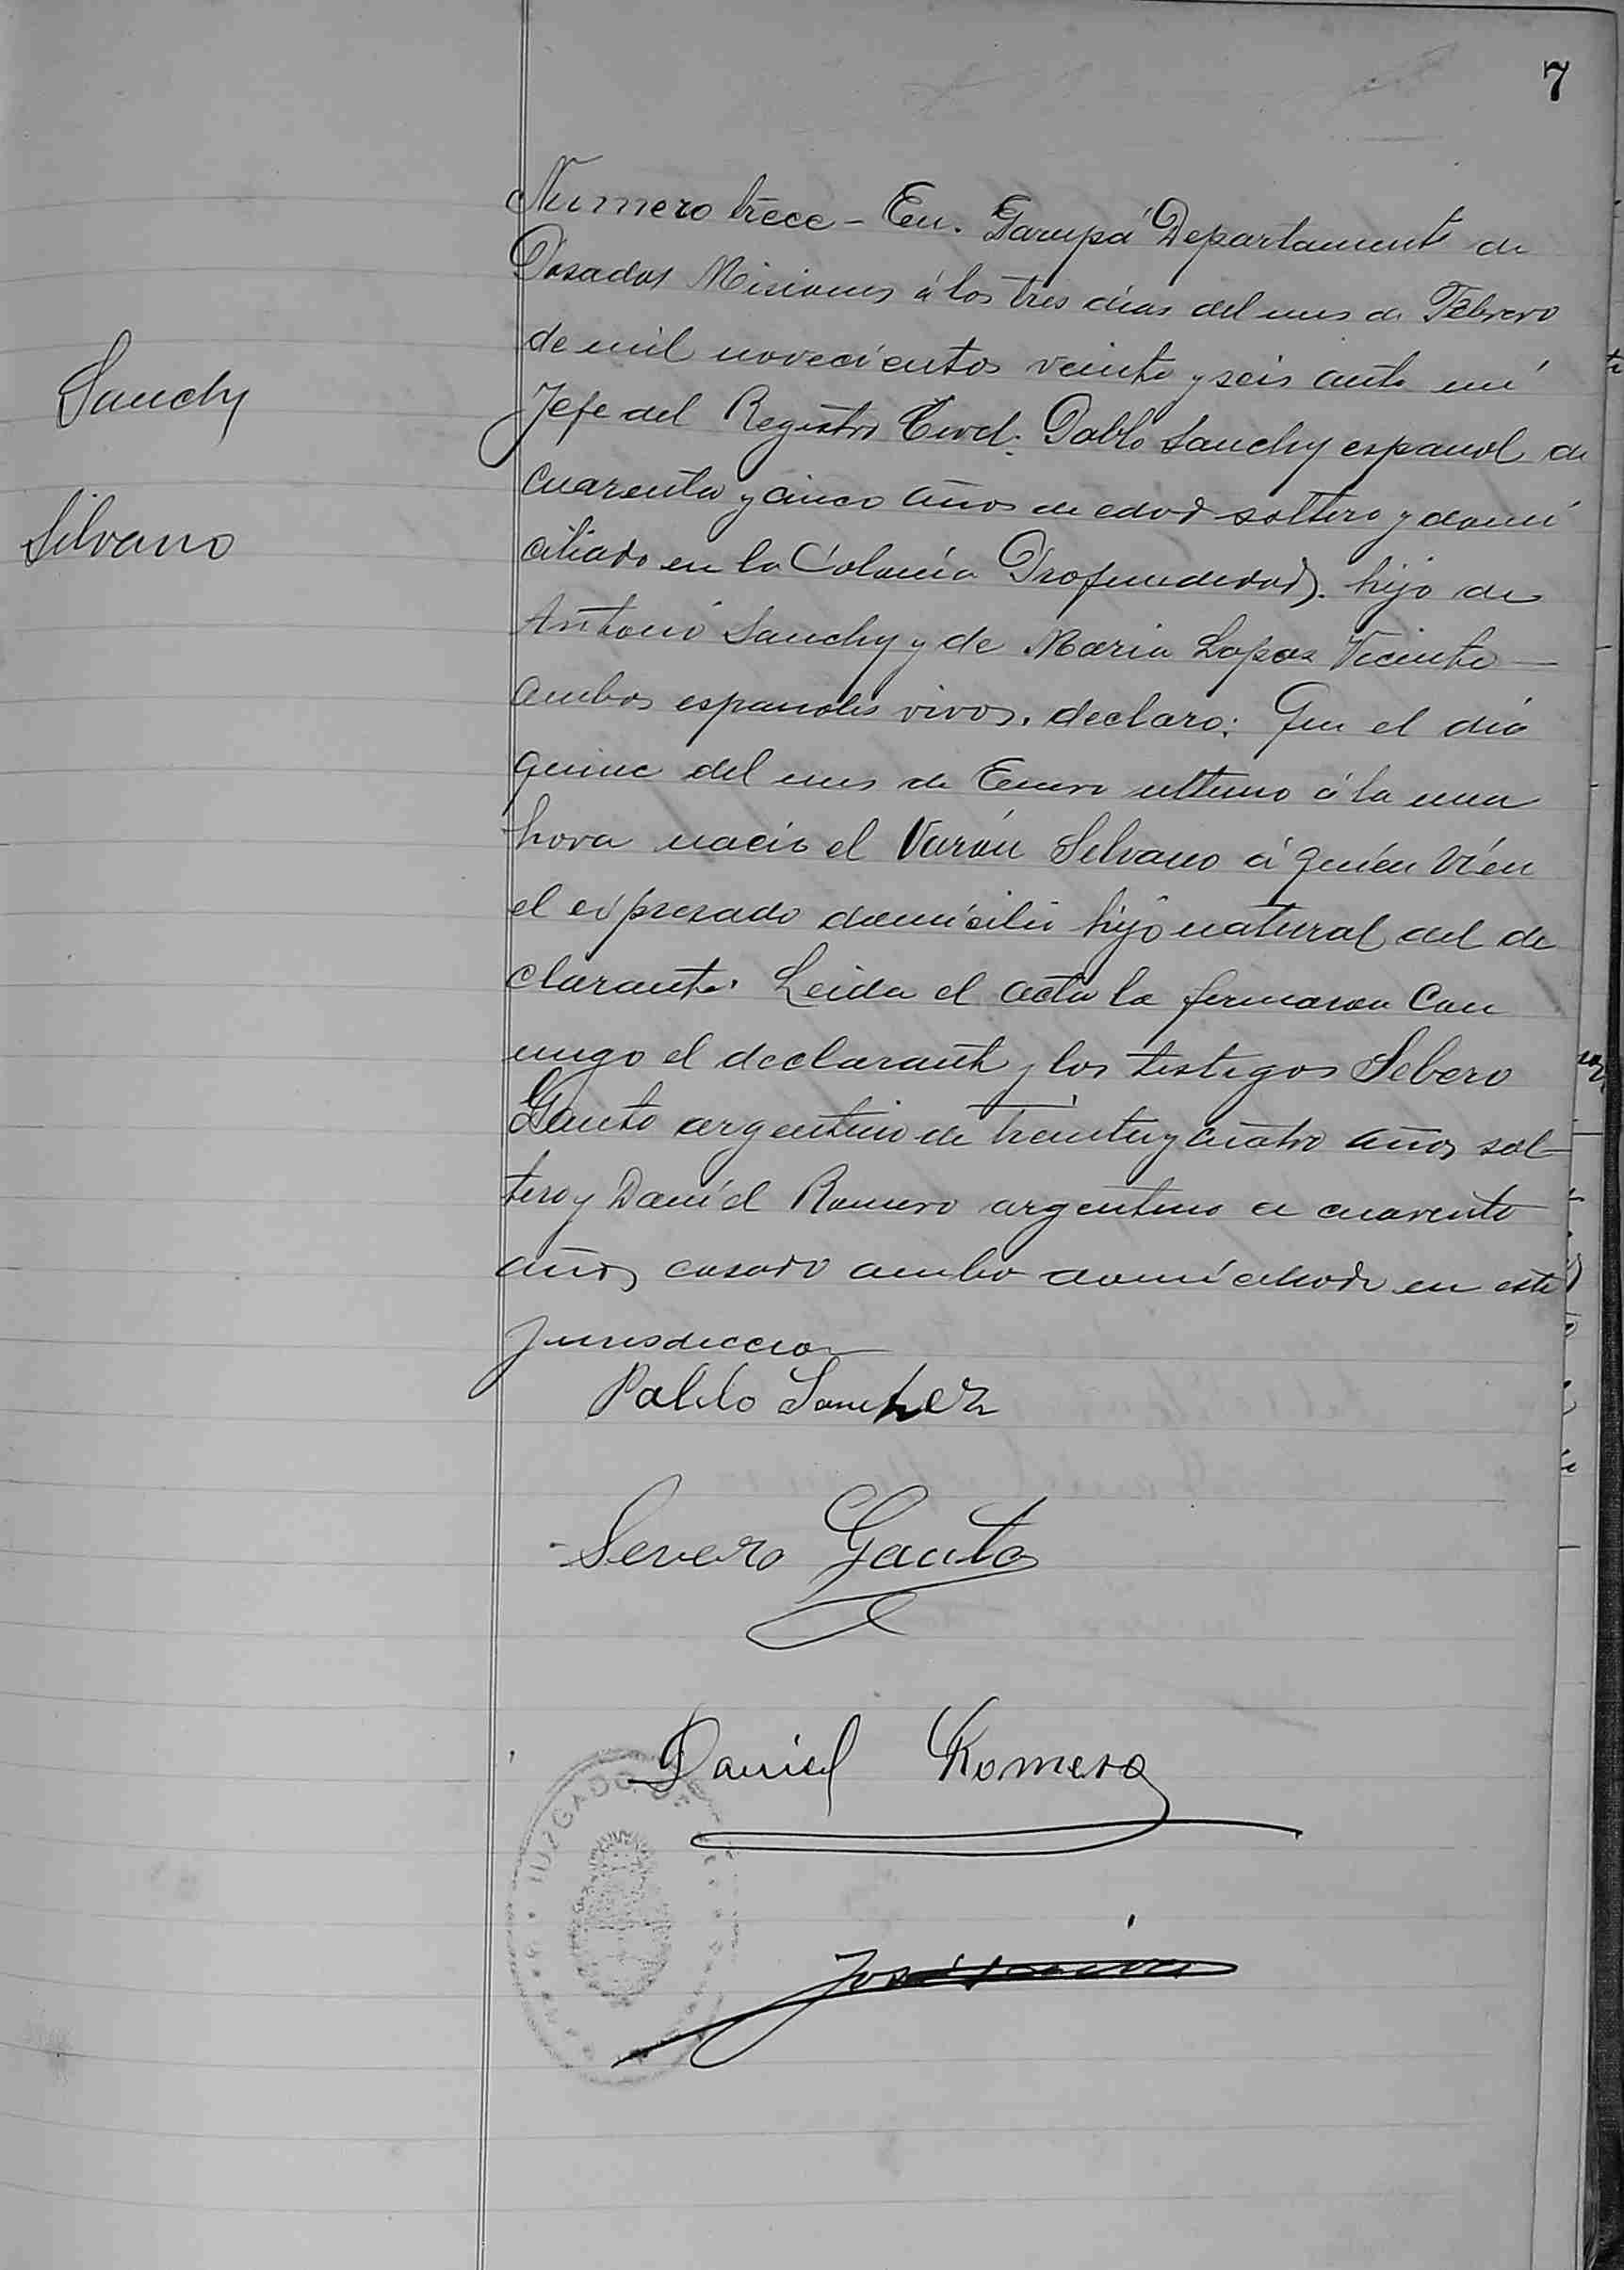 7
Numero trece - En. Garupá Departamento de
Posadas Misiones á los tres dias del mes de Febrero
de mil novecientos veinte y seis ante mi
Jefe del Registro Civil: Pablo Sanchz español de
Sanchz
cuarenta y cinco años de edad soltero y domi
Silvano
ciliado en la Colonia Profundidad. hijo de
Antonio Sanchz y de Maria Lopez Vicente —
ambos españoles vivos. declaro: Que el dia
quince del mes de Enero ultimo á la una
hora nacio el Varón Silvano á quien ví en
el expresado domicilio hijo natural del de
clarante. Leida el acta la firmaron con
migo el declarante y los testigos Sebero
Gauto argentino de treinta y cuatro años sol
tero y Daniel Romero argentino de cuarenta
años casado ambos domiciliados en esta
Jurisdiccion
Pablo Sanchez
Severo Gauto
Daniel Romero
JUZGADO DE
José